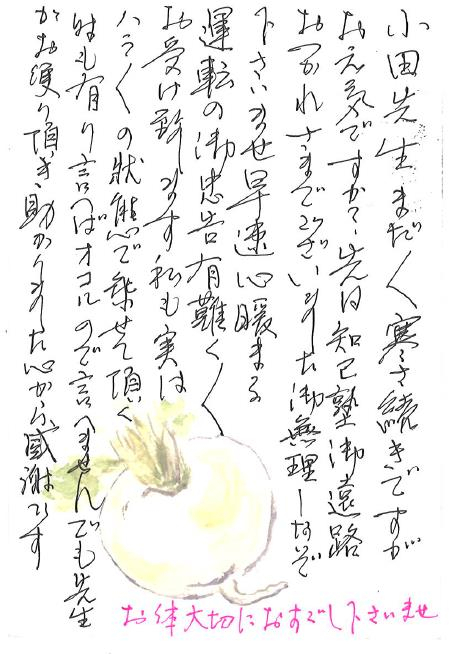 小田先生まだ〱寒さ続きですが
お元気ですか?先は知己塾御遠路
おつかれさまでございました御無理しなぞ
下さいませ早速心暖まる
運転の御忠告有難く〱
お受け致します私も実は
ハラ〱の状態で乗せて頂く
時も有り言へばオコルので言へませんでも先生
がお便り頂き助かりました心から感謝です
お体大切におすごし下さいませ